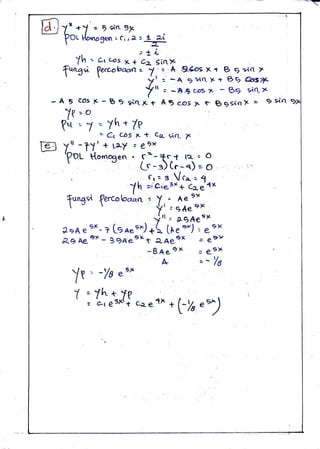 d. y" + y = 5 sin 5x
PDL Homogen : r1,2 = ± 2i
2
= ± i
yh = C1 cos x + C2 sin x
Fungsi Percobaan = y = A 5 cos x + B 5 sin x
y' = -A 5 sin x + B 5 cos x
y" = -A 5 cos x - B 5 sin x
- A 5 cos x - B 5 sin x + A 5 cos x + B 5 sin x = 5 sin 5x
yp = 0
PU = y = yh + yp
= C1 cos x + C2 sin x
e. y" - 7y' + 12y = e^5x
PDL Homogen = r² - 7r + 12 = 0
(r-3)(r-4) = 0
r1 = 3 V r2 = 4
yh = C1e^3x + C2e^4x
Fungsi Percobaan = y = Ae^5x
y' = 5Ae^5x
y" = 25Ae^5x
25Ae^5x - 7(5Ae^5x) + 2(Ae^5x) = e^5x
25Ae^5x - 35Ae^5x + 2Ae^5x = e^5x
-8Ae^5x = e^5x
A = -1/8
yp = -1/8 e^5x
y = yh + yp
= C1e^3x + C2e^4x + (-1/8 e^5x)